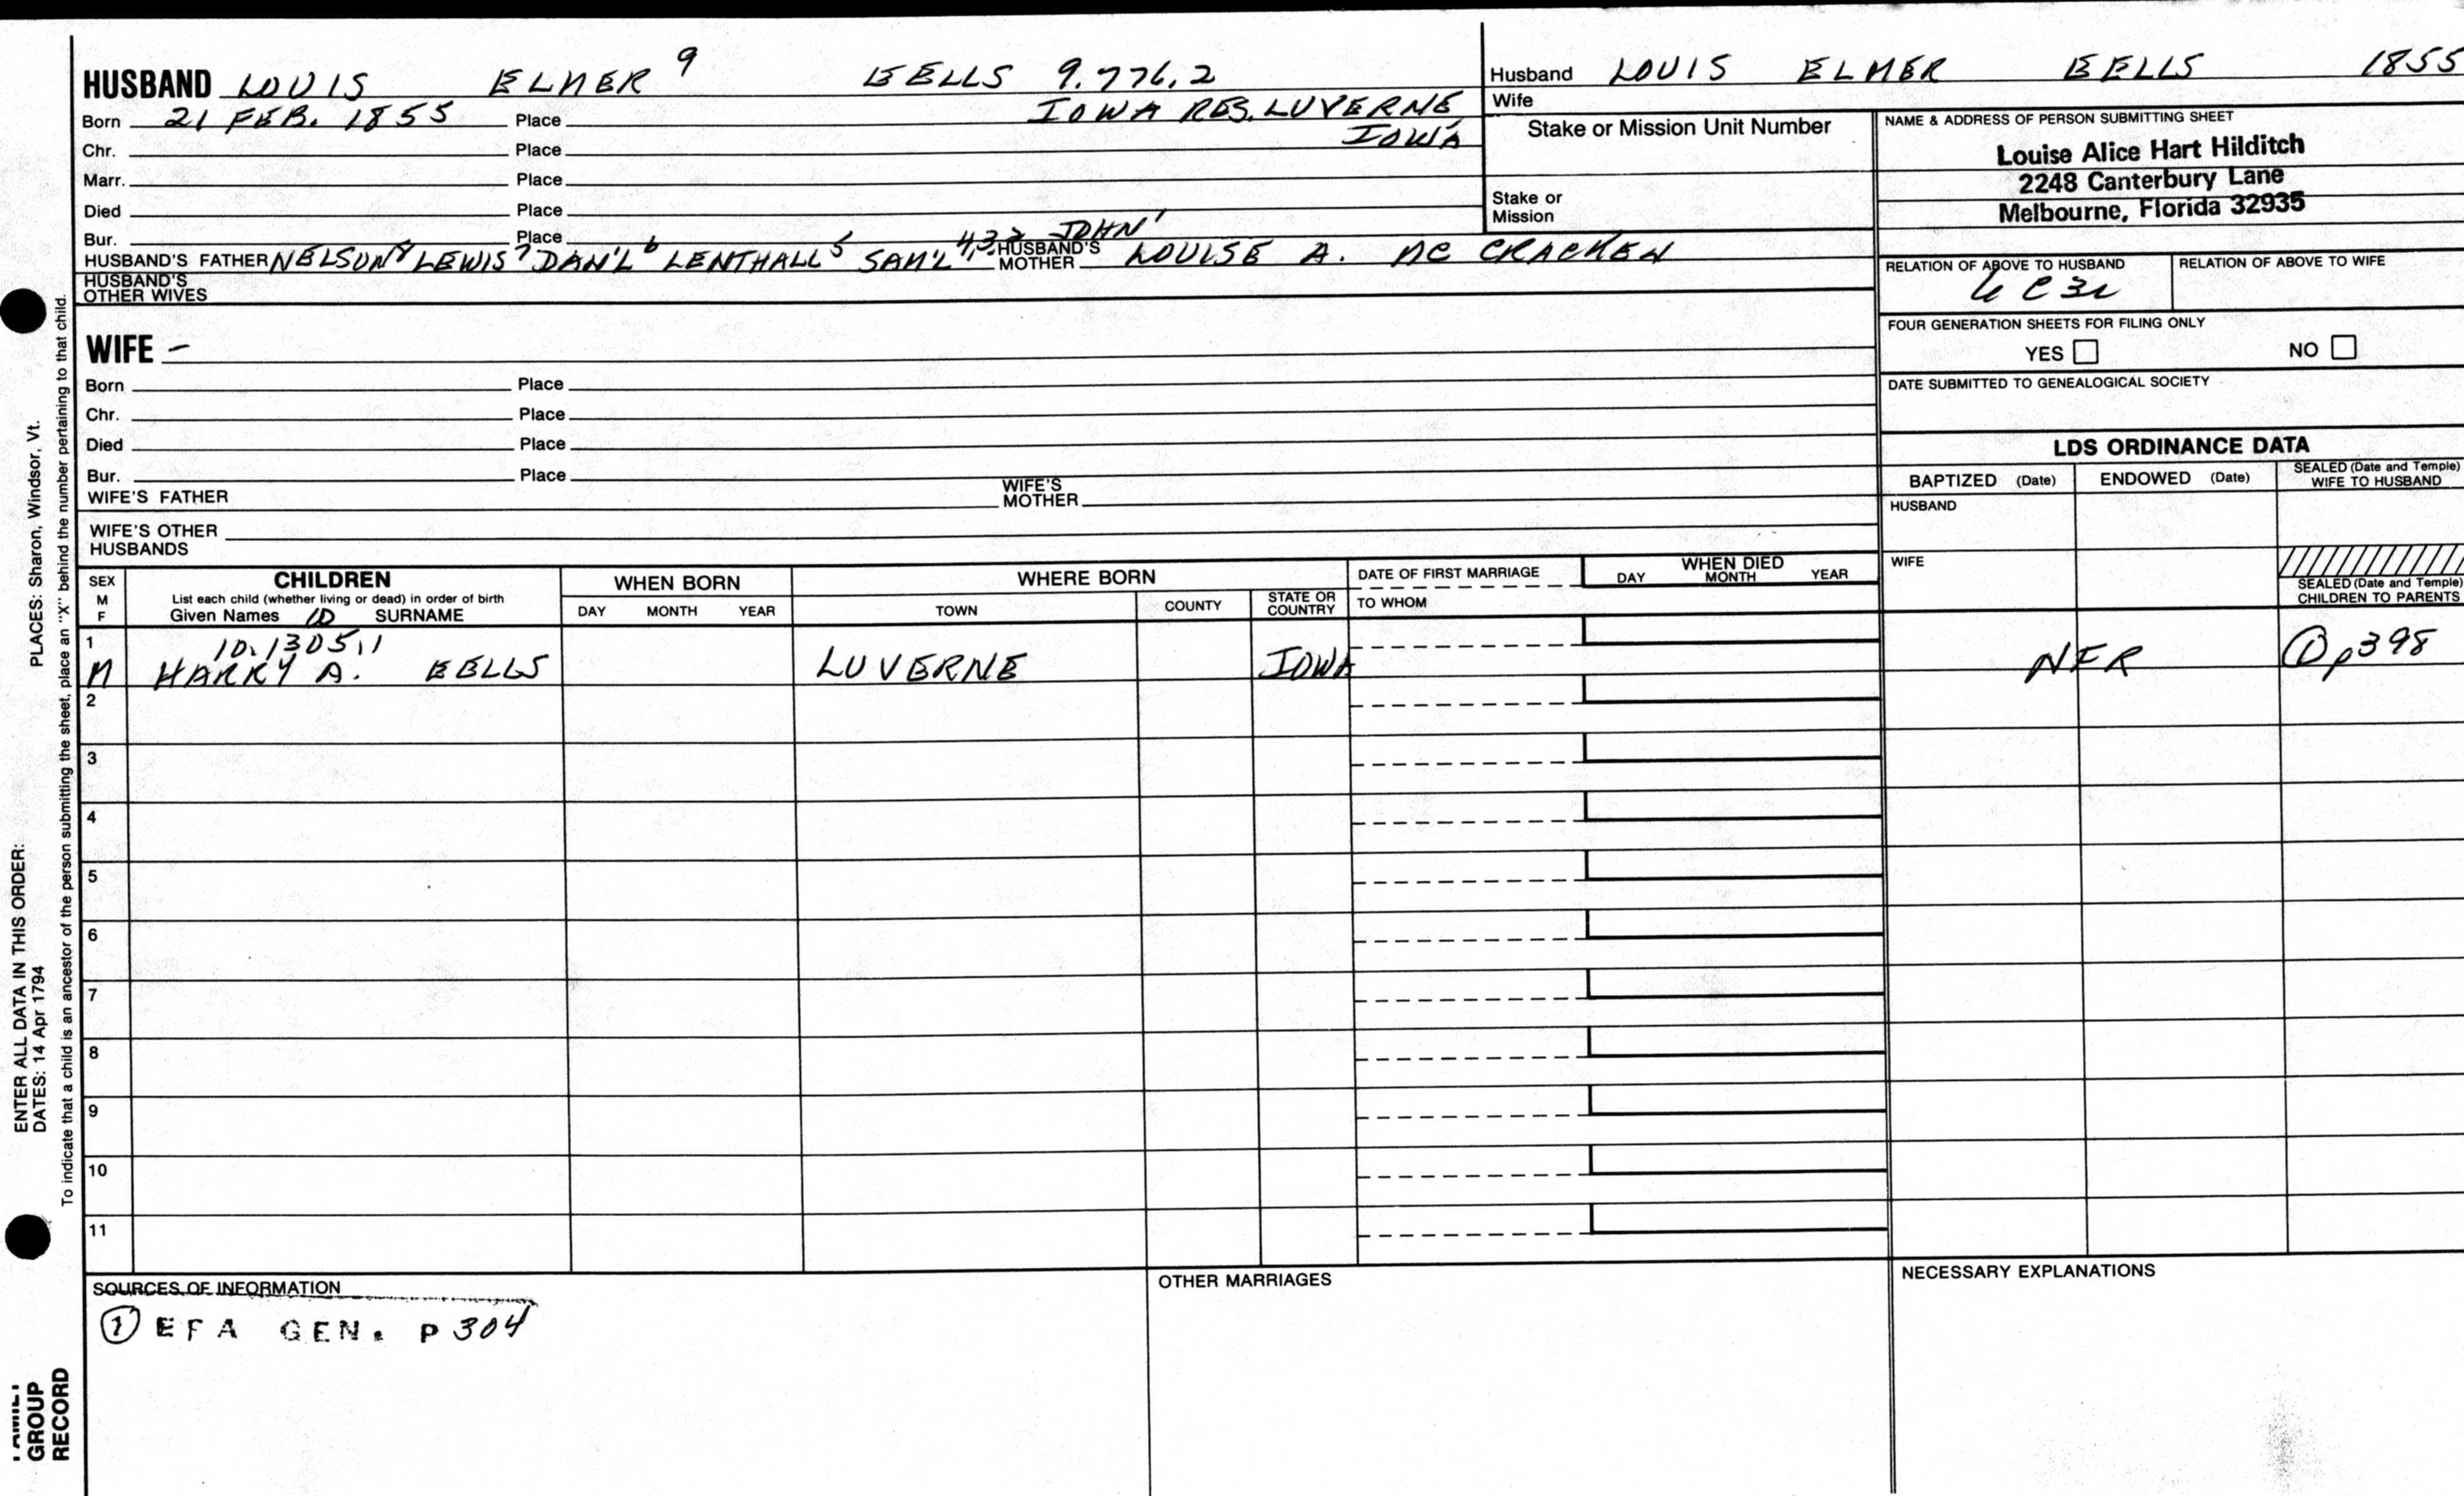 HUSBAND LOUIS ELMER 9 EELLS 9.776.2
Born 21 FEB. 1855 Place IOWA RES. LUVERNE
IOWA
Chr. Place
Marr. Place
Died Place
Bur. Place
HUSBAND'S FATHER NELSON 8 LEWIS 7 DAN'L 6 LENTHALL 5 SAM'L 4,3,2 JOHN 1 HUSBAND'S MOTHER LOUISE A. MC CRACKEN
HUSBAND'S
OTHER WIVES
WIFE –
Born Place
Chr. Place
Died Place
Bur. Place
WIFE'S FATHER WIFE'S MOTHER
WIFE'S OTHER
HUSBANDS
Husband LOUIS ELMER EELLS 1855
Wife
Stake or Mission Unit Number
Stake or
Mission
NAME & ADDRESS OF PERSON SUBMITTING SHEET
Louise Alice Hart Hilditch
2248 Canterbury Lane
Melbourne, Florida 32935
RELATION OF ABOVE TO HUSBAND RELATION OF ABOVE TO WIFE
FOUR GENERATION SHEETS FOR FILING ONLY
YES NO
DATE SUBMITTED TO GENEALOGICAL SOCIETY
LDS ORDINANCE DATA
BAPTIZED (Date) ENDOWED (Date) SEALED (Date and Temple) WIFE TO HUSBAND
HUSBAND
WIFE
SEALED (Date and Temple)
CHILDREN TO PARENTS
SEX
M
F
CHILDREN
List each child (whether living or dead) in order of birth
Given Names 10 SURNAME
WHEN BORN
DAY MONTH YEAR
WHERE BORN
TOWN COUNTY STATE OR COUNTRY
DATE OF FIRST MARRIAGE
TO WHOM
WHEN DIED
DAY MONTH YEAR
1 10.1305.1
M HARRY A. EELLS LUVERNE IOWA NFR ① p398
2
3
4
5
6
7
8
9
10
11
SOURCES OF INFORMATION
① EFA GEN. P 304
OTHER MARRIAGES
NECESSARY EXPLANATIONS
PLACES: Sharon, Windsor, Vt.
ENTER ALL DATA IN THIS ORDER:
DATES: 14 Apr 1794
To indicate that a child is an ancestor of the person submitting the sheet, place an "X" behind the number pertaining to that child.
GROUP
RECORD